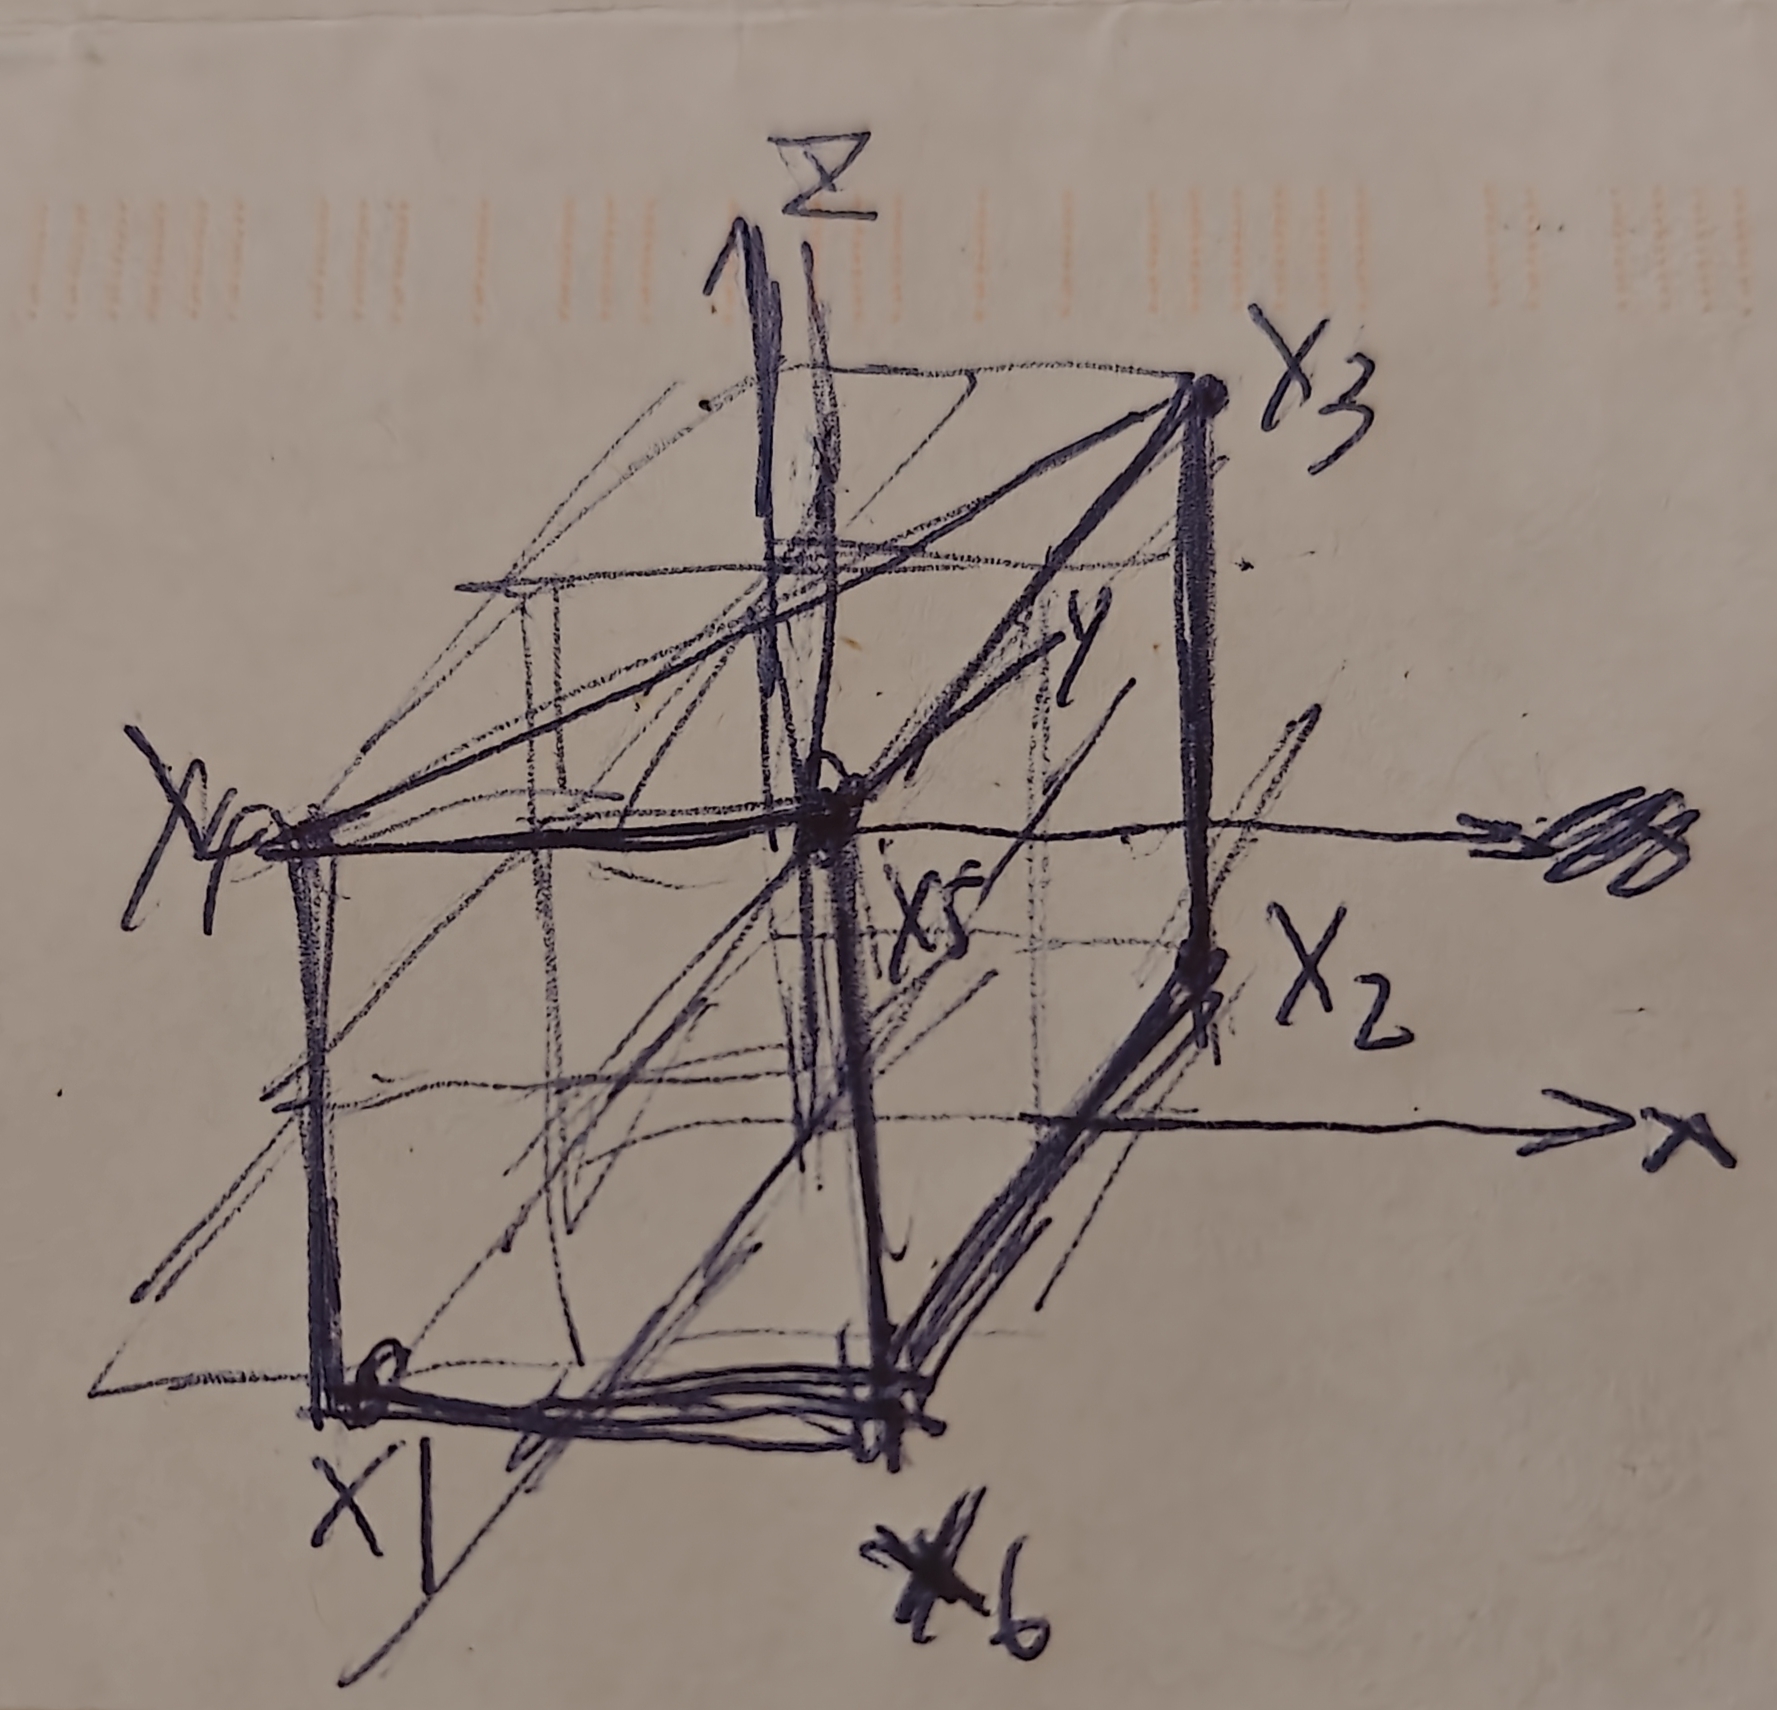 Z
X3
Y
X4
X5
X2
X
X1
X6